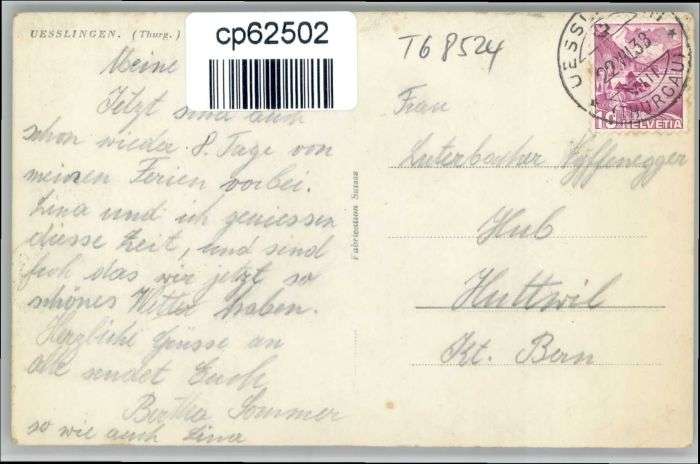 UESSLINGEN. (Thurg.)
cp62502
T6 8524
Meine
Jetzt sind auch
schon wieder 8. Tage von
meinen Ferien vorbei.
Lina und ich geniessen
diese Zeit, und sind
froh das wir jetzt so
schönes Wetter haben.
Herzliche Grüsse an
alle sendet Euch
Bertha Sommer
so wie auch Lina
Fabrication Suisse
Frau
Luterbacher Nyffenegger
Hub
Huttwil
Kt. Bern
22.VII.38
(THURGAU)
10 HELVETIA